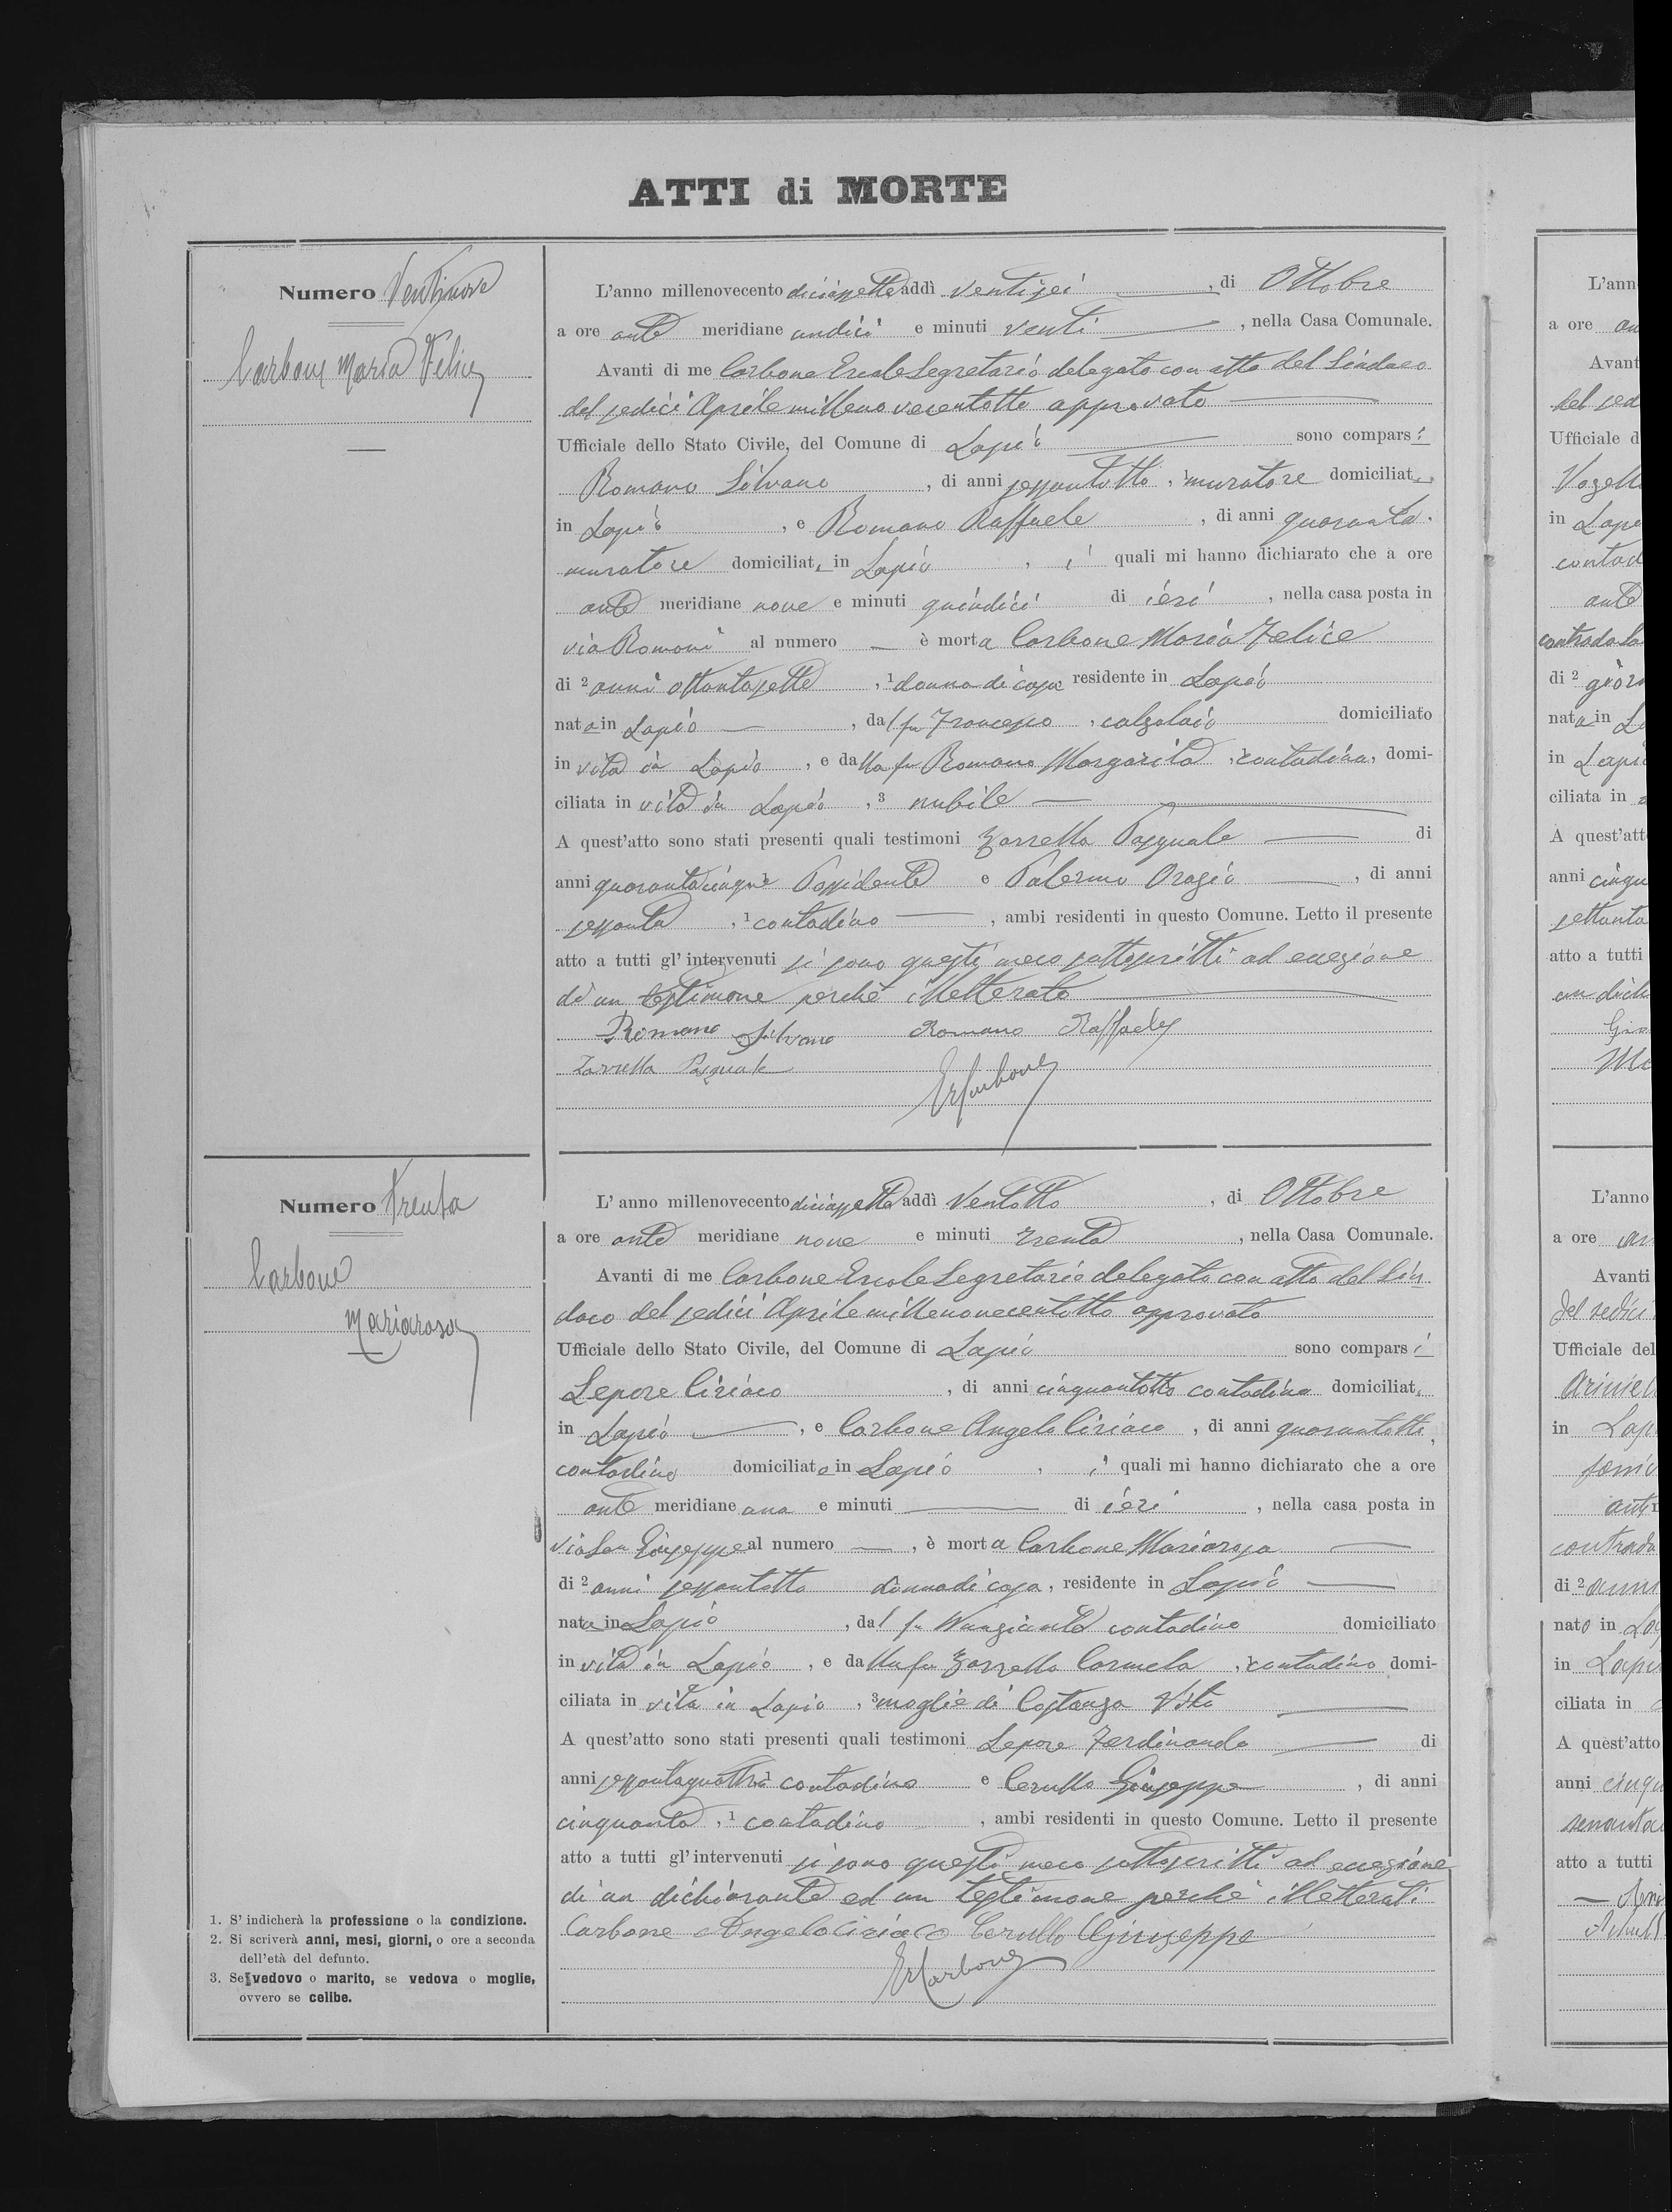 ATTI di MORTE
Numero Ventinove
Carbone Maria Felice
L'anno millenovecento diciassette addì ventisei, di Ottobre
a ore ante meridiane undici e minuti venti, nella Casa Comunale.
Avanti di me Carbone Ercole Segretario delegato con atto del Sindaco
del sedici Aprile millenovecentotto approvato
Ufficiale dello Stato Civile, del Comune di Lapio sono comparsi
Romano Silvano, di anni sessantotto, muratore domiciliat
in Lapio, e Romano Raffaele, di anni quaranta.
muratore domiciliat in Lapio, i quali mi hanno dichiarato che a ore
ante meridiane nove e minuti quindici di ieri, nella casa posta in
via Romani al numero — è morta Carbone Maria Felice
di ² anni ottantasette, ¹ donna di casa residente in Lapio
nata in Lapio, dal fu Francesco, calzolaio domiciliato
in vita in Lapio, e dalla fu Romano Margarita, contadina, domi-
ciliata in vita in Lapio, ³ nubile
A quest'atto sono stati presenti quali testimoni Zarrella Pasquale di
anni quarantacinque Possidente e Palermo Orazio, di anni
sessanta, ¹ contadino, ambi residenti in questo Comune. Letto il presente
atto a tutti gl' intervenuti si sono questi meco sottoscritti ad eccezione
di un testimone perchè illetterato
Romano Silvano Romano Raffaele
Zarrella Pasquale
ErCarbone
Numero Trenta
Carbone
Mariarosa
L' anno millenovecento diciassette addì Ventotto, di Ottobre
a ore ante meridiane nove e minuti trenta, nella Casa Comunale.
Avanti di me Carbone Ercole Segretario delegato con atto del Sin
daco del sedici Aprile millenovecentotto approvato
Ufficiale dello Stato Civile, del Comune di Lapio sono comparsi
Lepore Ciriaco, di anni cinquantotto contadino domiciliat
in Lapio, e Carbone Angelo Ciriaco, di anni quarantotto,
contadino domiciliato in Lapio, i quali mi hanno dichiarato che a ore
ante meridiane una e minuti — di ieri, nella casa posta in
via San Giuseppe al numero —, è morta Carbone Mariarosa
di ² anni sessantotto donna di casa, residente in Lapio
nata in Lapio, dal fu Nunziante contadino domiciliato
in vita in Lapio, e dalla fu Zarrella Carmela, contadina domi-
ciliata in vita in Lapio, ³ moglie di Costanza Vito
A quest'atto sono stati presenti quali testimoni Lepore Ferdinando di
anni sessantaquattro contadino e Cerullo Giuseppe, di anni
cinquanta, ¹ contadino, ambi residenti in questo Comune. Letto il presente
atto a tutti gl' intervenuti si sono questi meco sottoscritti ad eccezione
di un dichiarante ed un testimone perchè illetterati
Carbone Angelo Ciriaco Cerullo Giuseppe
ErCarbone
1. S' indicherà la professione o la condizione.
2. Si scriverà anni, mesi, giorni, o ore a seconda
dell'età del defunto.
3. Se vedovo o marito, se vedova o moglie,
ovvero se celibe.